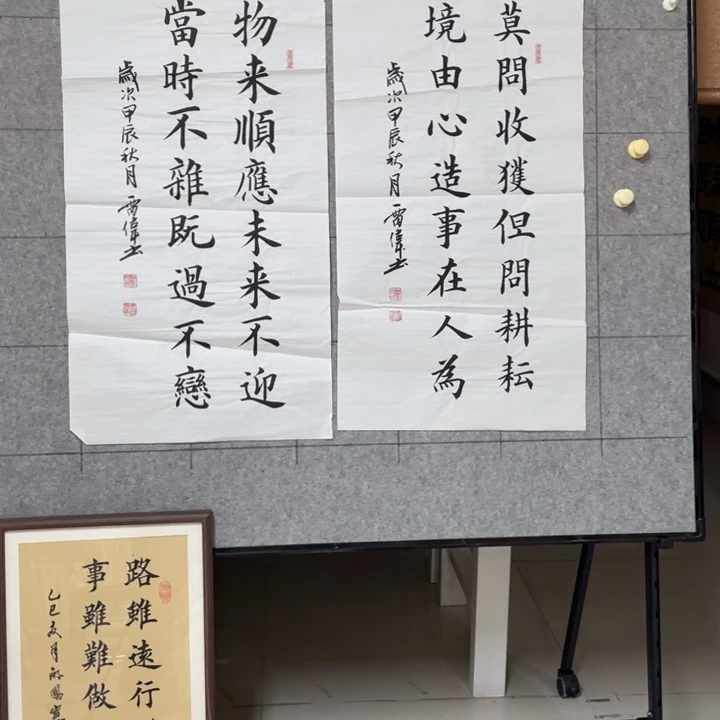 莫問收獲但問耕耘
境由心造事在人為
歲次甲辰秋月雷偉书
物来順應未来不迎
當時不雜既過不戀
歲次甲辰秋月雷偉书
路雖遠行
事雖難做
乙巳夏月